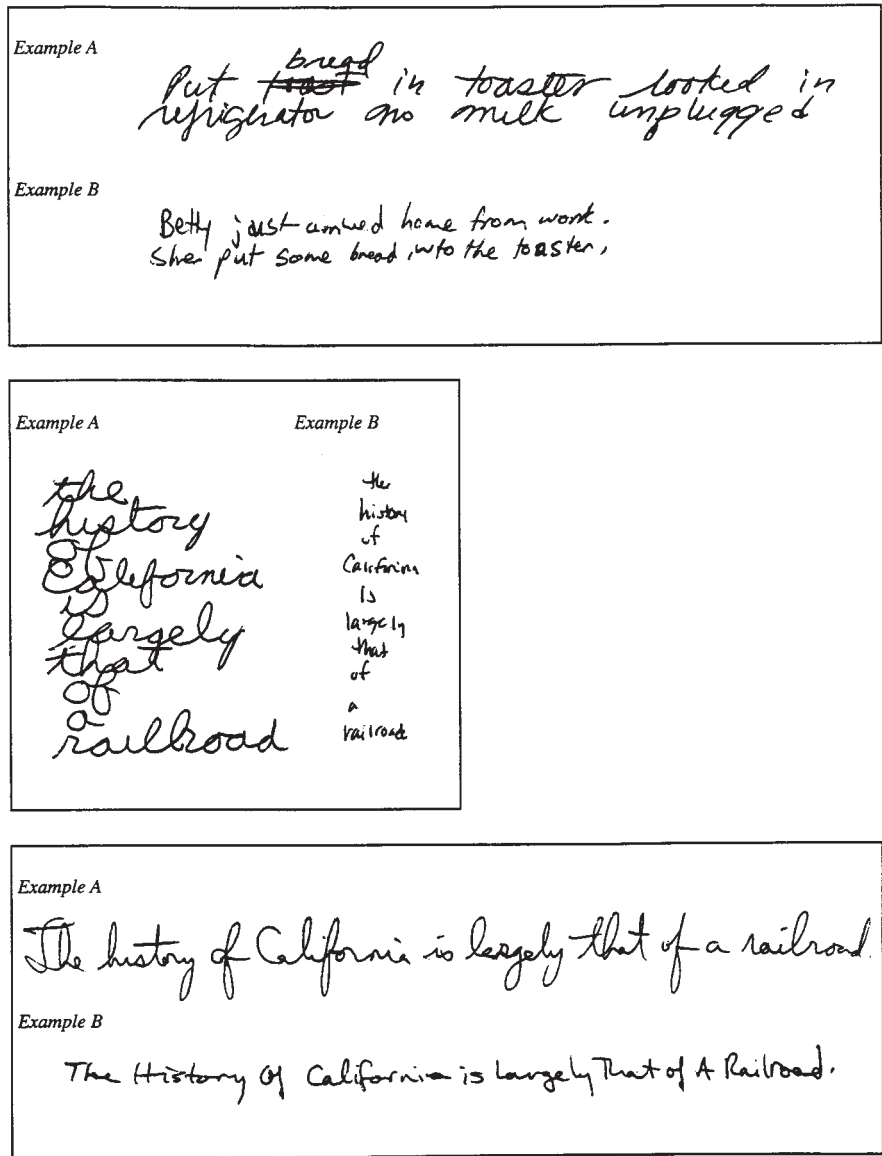 Example A
bread
Put toast in toaster looked in
refrigerator no milk unplugged
Example B
Betty just arrived home from work.
She put some bread into the toaster,
Example A
the
history
of
California
is
largely
that
of
a
railroad
Example B
the
history
of
California
is
largely
that
of
a
railroad
Example A
The history of California is largely that of a railroad.
Example B
The History Of California is Largely That of A Railroad.